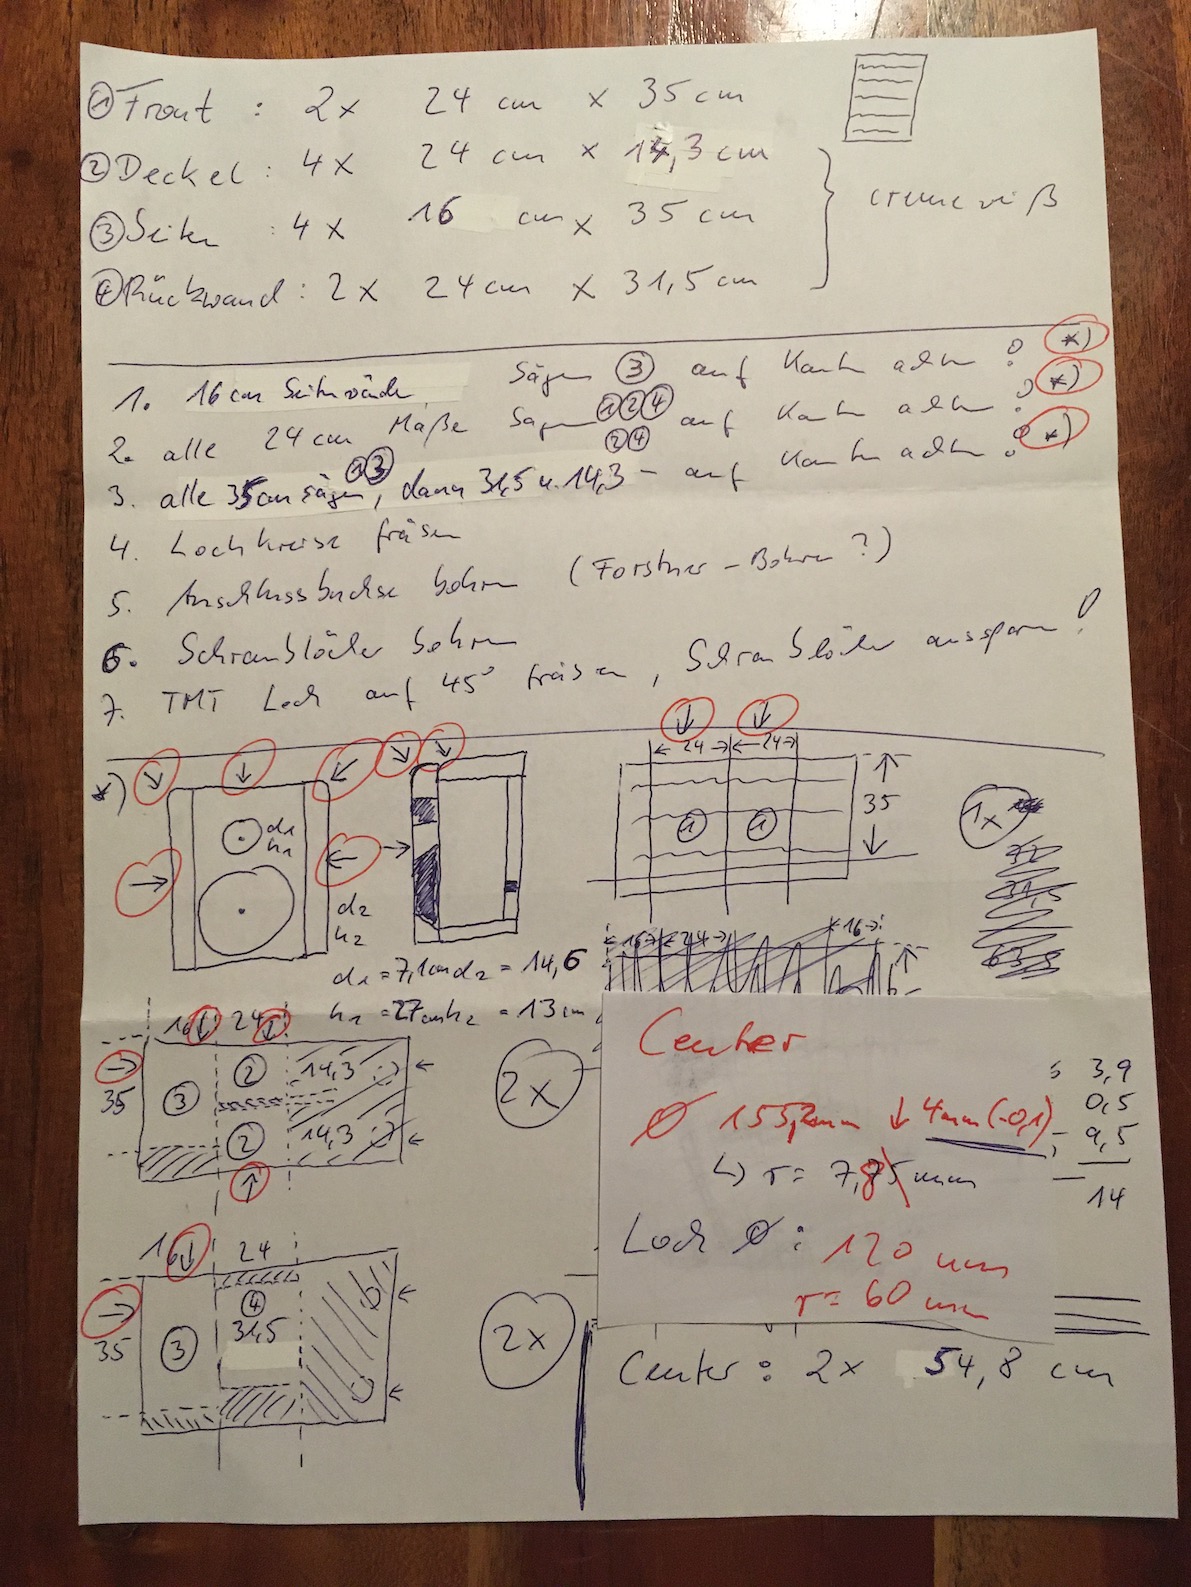 ① Front : 2x 24 cm x 35 cm
② Deckel : 4x 24 cm x 14,3 cm
③ Seiten : 4x 16 cm x 35 cm
④ Rückwand : 2x 24 cm x 31,5 cm
cremeweiß
1. 16 cm Seitenwände Sägen ③ auf Kanten achten ! *)
2. alle 24 cm Maße sägen ①②④ auf Kanten achten ! *)
3. alle 35 cm sägen ①③, dann 31,5 u. 14,3 ②④ - auf Kanten achten ! *)
4. Lochkreise fräsen
5. Anschlussbuchse bohren (Forstner-Bohrer ?)
6. Schraublöcher bohren
7. TMT Loch auf 45° fräsen, Schraublöcher aussparen !
*)
d1
h1
d2
h2
24 24
35
① ①
1x
d1 = 7,1 cm d2 = 14,6
h1 = 27 cm h2 = 13 cm
16 24 16
16 24
35
③ ② 14,3
② 14,3
2x
Center
Ø 155,2mm ↓ 4mm (-0,1)
↳ r = 7,8 mm
Loch Ø : 120 mm
r = 60 mm
3,9
0,5
9,5
14
16 24
35
③ ④
31,5
2x
Center : 2x 54,8 cm